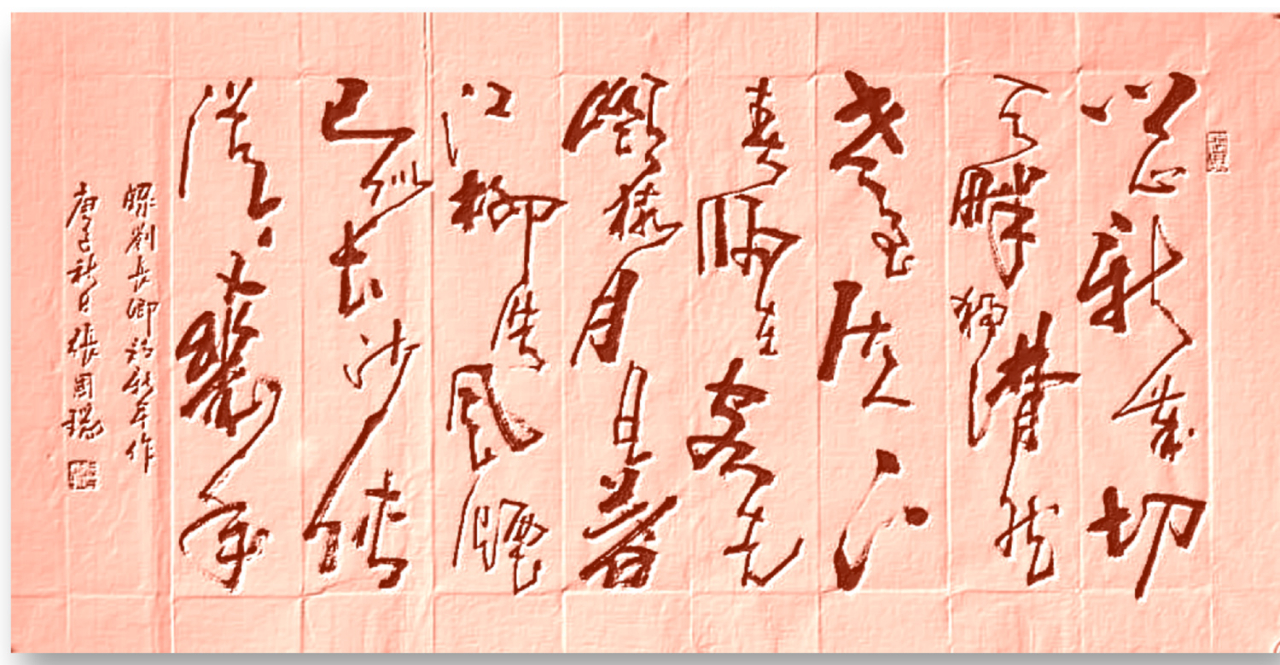 鄉心新歲切
天畔獨潸然
老至居人下
春歸在客先
嶺猿同旦暮
江柳共風煙
已似長沙傅
從今又幾年
錄劉長卿詩新年作
庚子秋日張國瑞